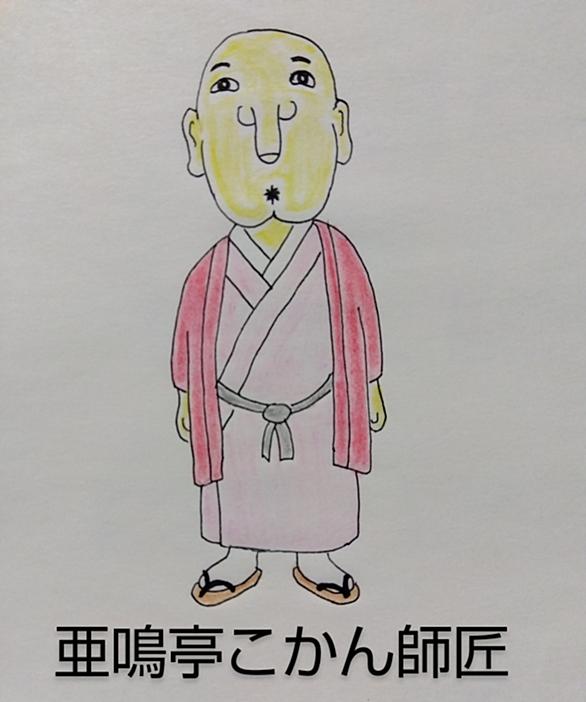 亜鳴亭こかん師匠